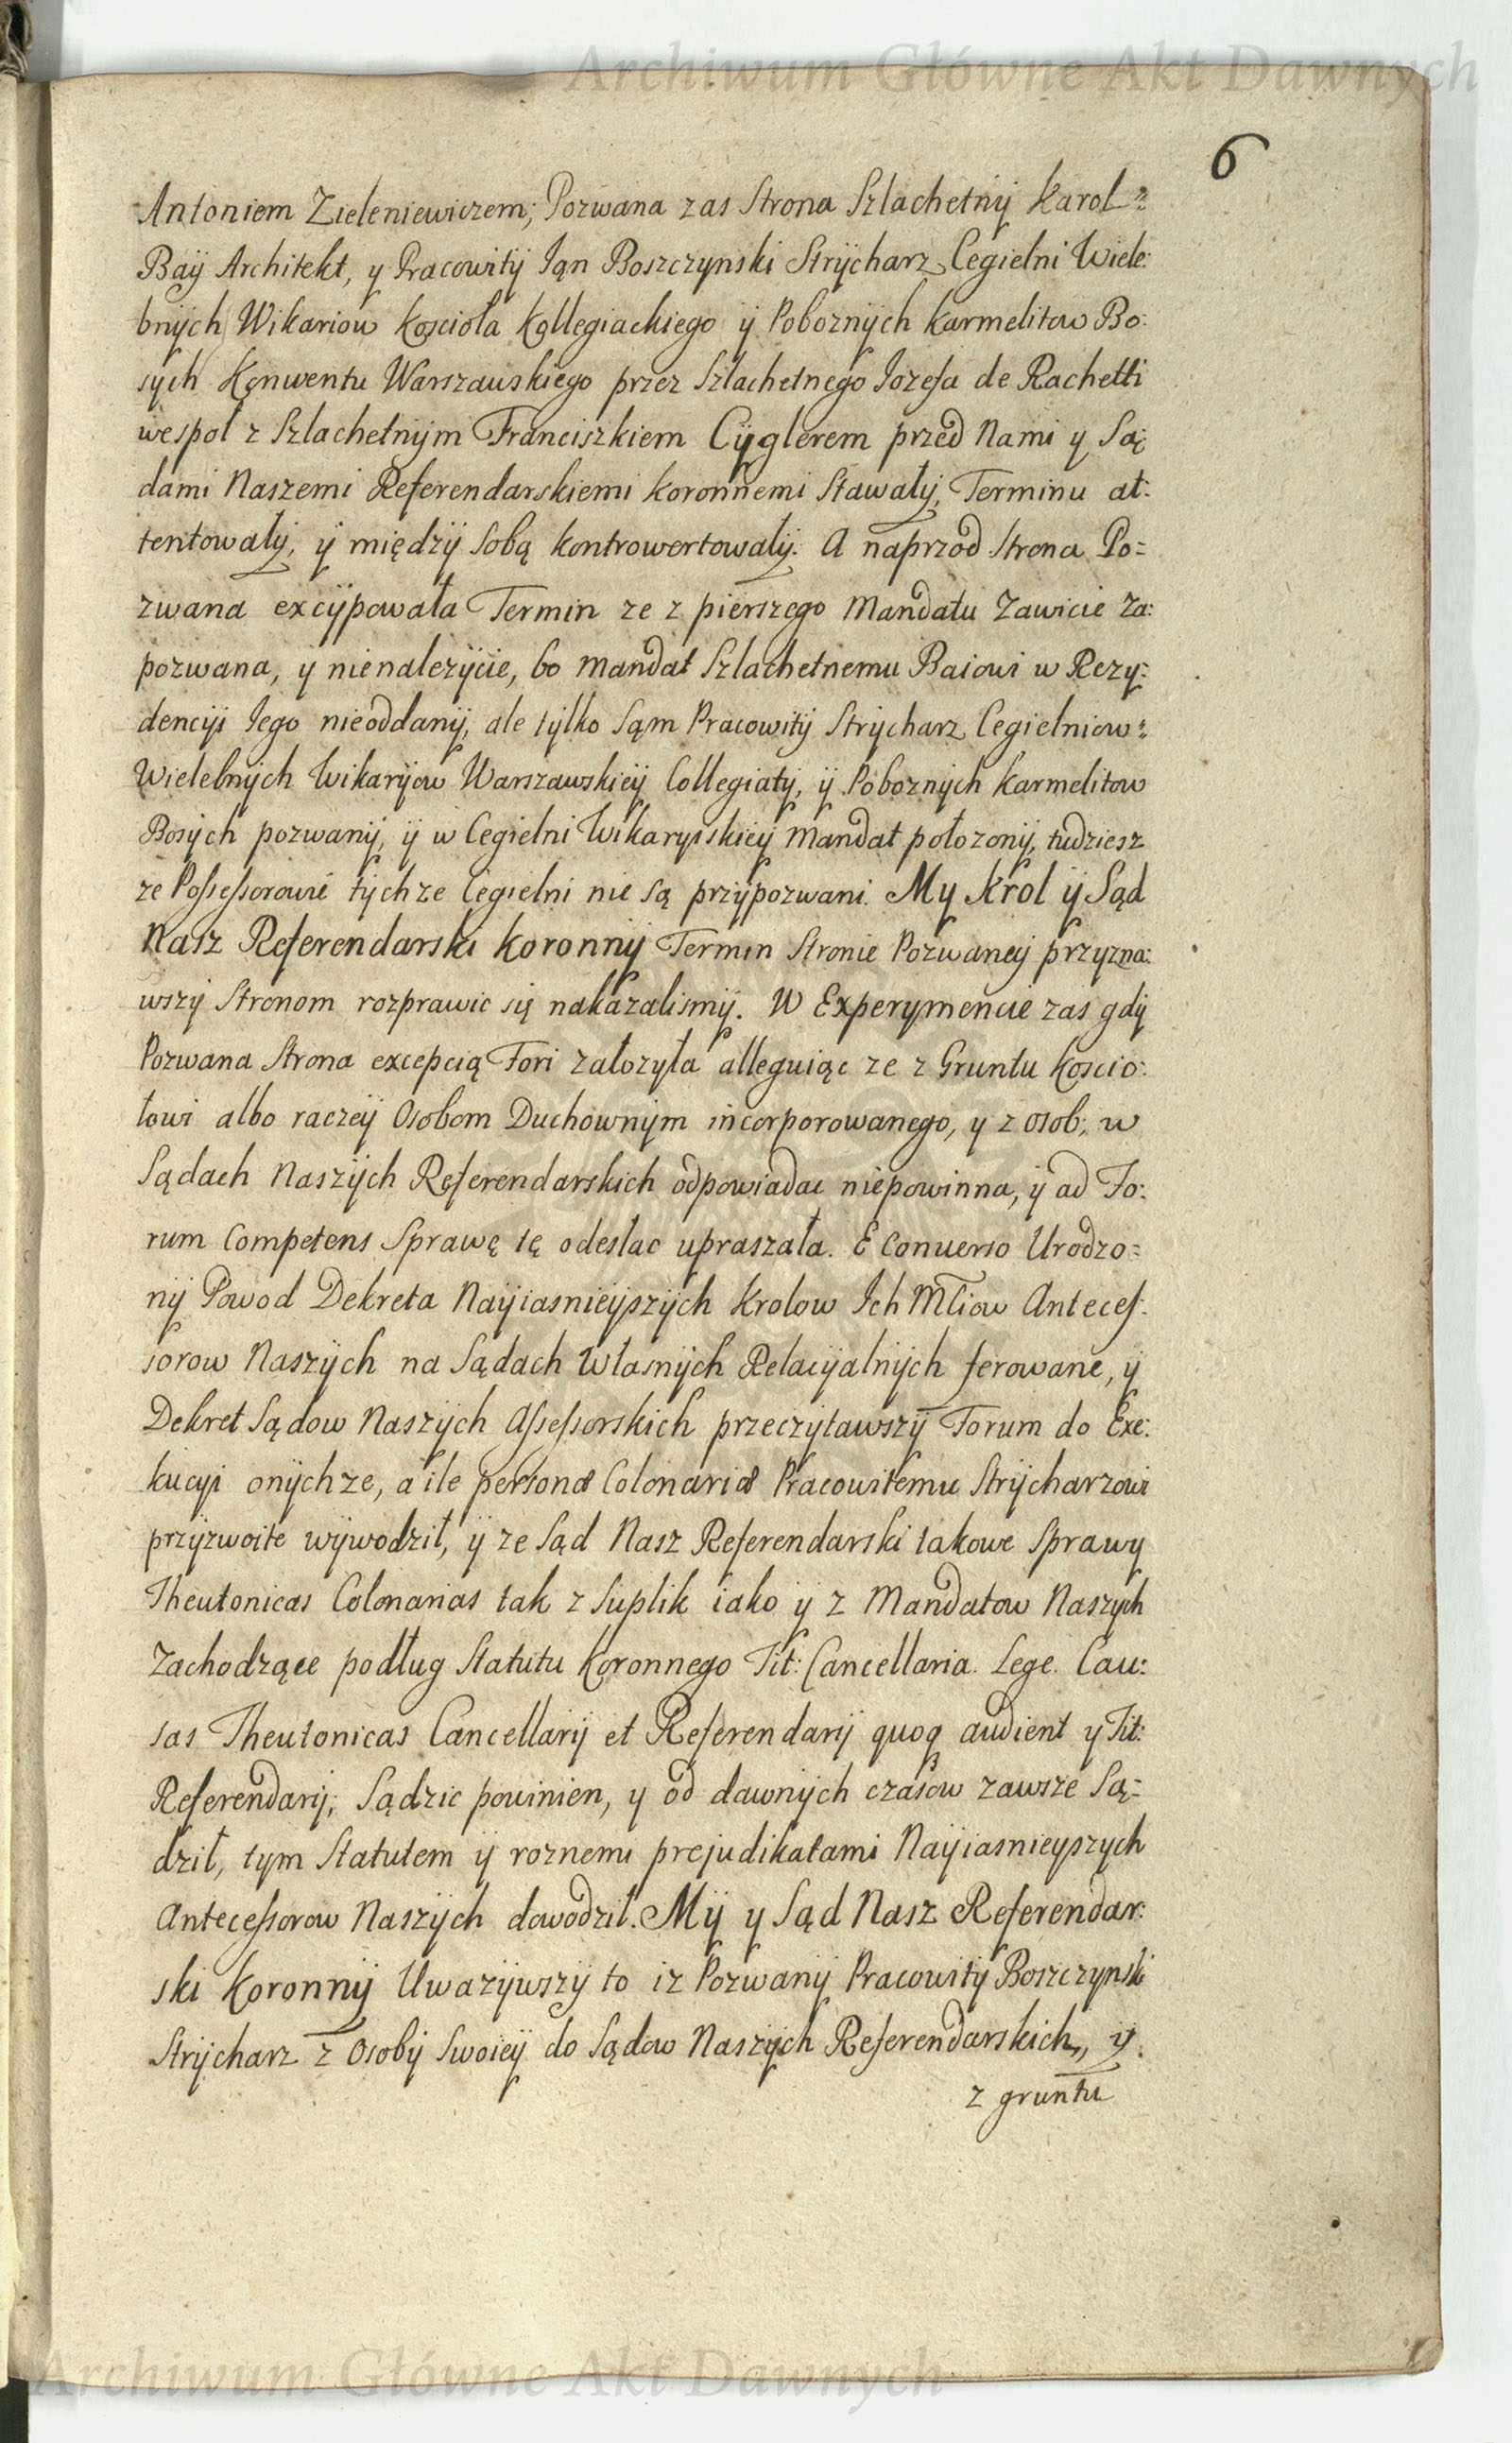 Archiwum Główne Akt Dawnych
6
Antoniem Zieleniewiczem; Pozwana zas Strona Szlachetnÿ Karol
Baÿ Architekt, y Pracowitÿ Iąn Boszczynski Strÿcharz Cegielni Wiele:
bnÿch Wikariow Koscioła Kollegiackiego ÿ Poboznÿch Karmelitow Bo:
sÿch Konwentu Warszawskiego przez Szlachetnego Iozefa de Rachetti
wespoł z Szlachetnÿm Franciszkiem Cÿglerem przed Nami y Są:
dami Naszemi Referendarskiemi Koronnemi Stawałÿ, Terminu at:
tentowałÿ, ÿ międzÿ Sobą kontrowertowałÿ. A naprzod Strona Po=
zwana excÿpowała Termin ze z pierszego Mandatu Zawicie Za:
pozwana, y nienalezÿcie, bo Mandat Szlachetnemu Baiowi w Rezy:
dencÿi Iego nieoddanÿ, ale tÿlko Sąm Pracowitÿ Strÿcharz Cegielniow:
Wielebnÿch Wikarÿow Warszawskieÿ Collegiatÿ, ÿ Poboznÿch Karmelitow
Bosÿch pozwanÿ, ÿ w Cegielni Wikarÿiskieÿ Mandat połozonÿ, tudziesz
ze Possessorowie tÿchze Cegielni nie są przÿpozwani. My Krol ÿ Sąd
Nasz Referendarski Koronnÿ Termin Stronie Pozwaneÿ przyzna:
wszÿ Stronom rozprawic się nakazalismÿ. W Experymencie zas gdÿ
Pozwana Strona excepcią Fori załozyła alleguiąc ze z Gruntu Koscio:
łowi albo raczeÿ Osobom Duchownÿm incorporowanego, y z osob, w
Sądach Naszÿch Referendarskich odpowiadac niepowinna, ÿ ad Fo:
rum Competens Sprawę tę odesłac upraszała. E Conuerso Urodzo=
nÿ Powod Dekreta Naÿiasnieÿszÿch Krolow Ich Mciow Antecef-
sorow Naszÿch na Sądach Własnÿch Relacÿalnÿch ferowane, ÿ
Dekret Sądow Naszÿch Assessorskich przeczÿtawszÿ Forum do Exe:
kucyi onÿchze, a ile personæ Colonariæ Pracowitemu Strÿcharzowi
przÿzwoite wÿwodził, ÿ ze Sąd Nasz Referendarski takowe Sprawy
Theutonicas Colonarias tak z Suplik iako ÿ z Mandatow Naszÿch
Zachodzące podług Statutu Koronnego Tit: Cancellaria. Lege. Cau:
sas Theutonicas Cancellarij et Referendarij quoq audient y Tit:
Referendarij, Sądzic powinien, y od dawnÿch czasow zawsze Są=
dził, tym Statutem ÿ roznemi prejudikatami Naÿiasnieyszych
Antecessorow Naszÿch dowodził. Mÿ y Sąd Nasz Referendar:
ski Koronnÿ Uwazÿwszÿ to iz Pozwanÿ Pracowitÿ Boszczynski
Strÿcharz z Osobÿ Swoieÿ do Sądow Naszÿch Referendarskich, y
z gruntu
Archiwum Główne Akt Dawnych